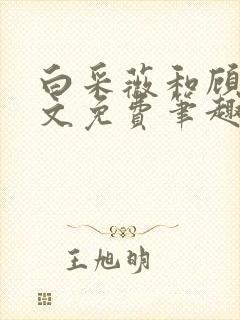 白采薇和顾
文免费笔趣
王旭明